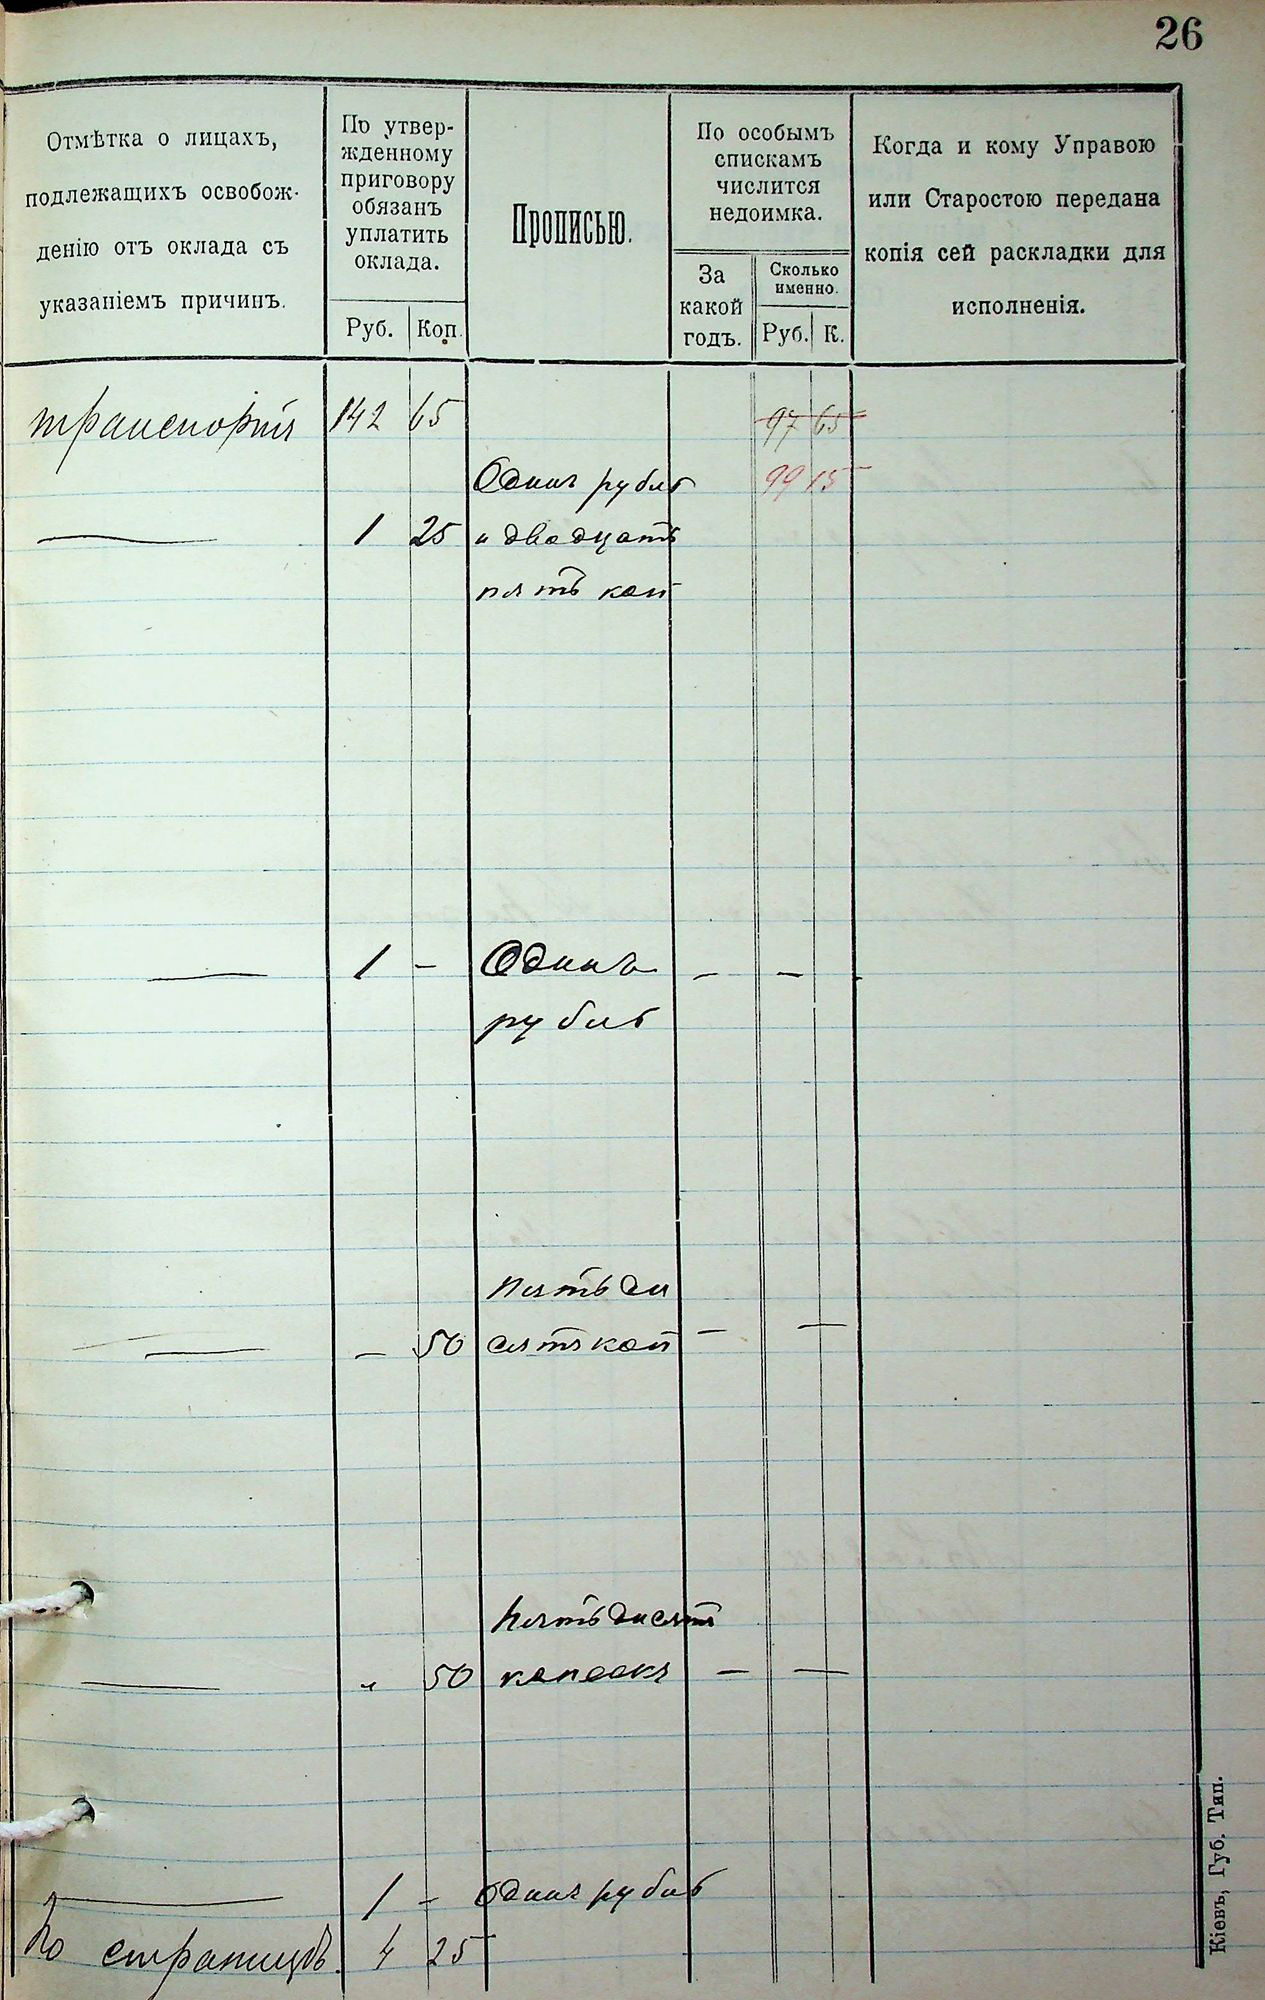 26
Отмѣтка о лицахъ,
подлежащихъ освобож-
денію отъ оклада съ
указаніемъ причинъ.
По утвер-
жденному
приговору
обязанъ
уплатить
оклада.
Руб. Коп.
Прописью.
По особымъ
спискамъ
числится
недоимка.
За
какой
годъ.
Сколько
именно.
Руб. К.
Когда и кому Управою
или Старостою передана
копія сей раскладки для
исполненія.
транспортъ 142 65 97 65
Одинъ рубль 99 15
— 1 25 и двадцать
пять коп
— 1 - Одинъ - -
рубль
Пятьде
— - 50 сятъ коп - -
Пятьдесятъ
— „ 50 копеекъ - -
— 1 - Одинъ рубль
По страницѣ 4 25
Кіевъ, Губ. Тип.